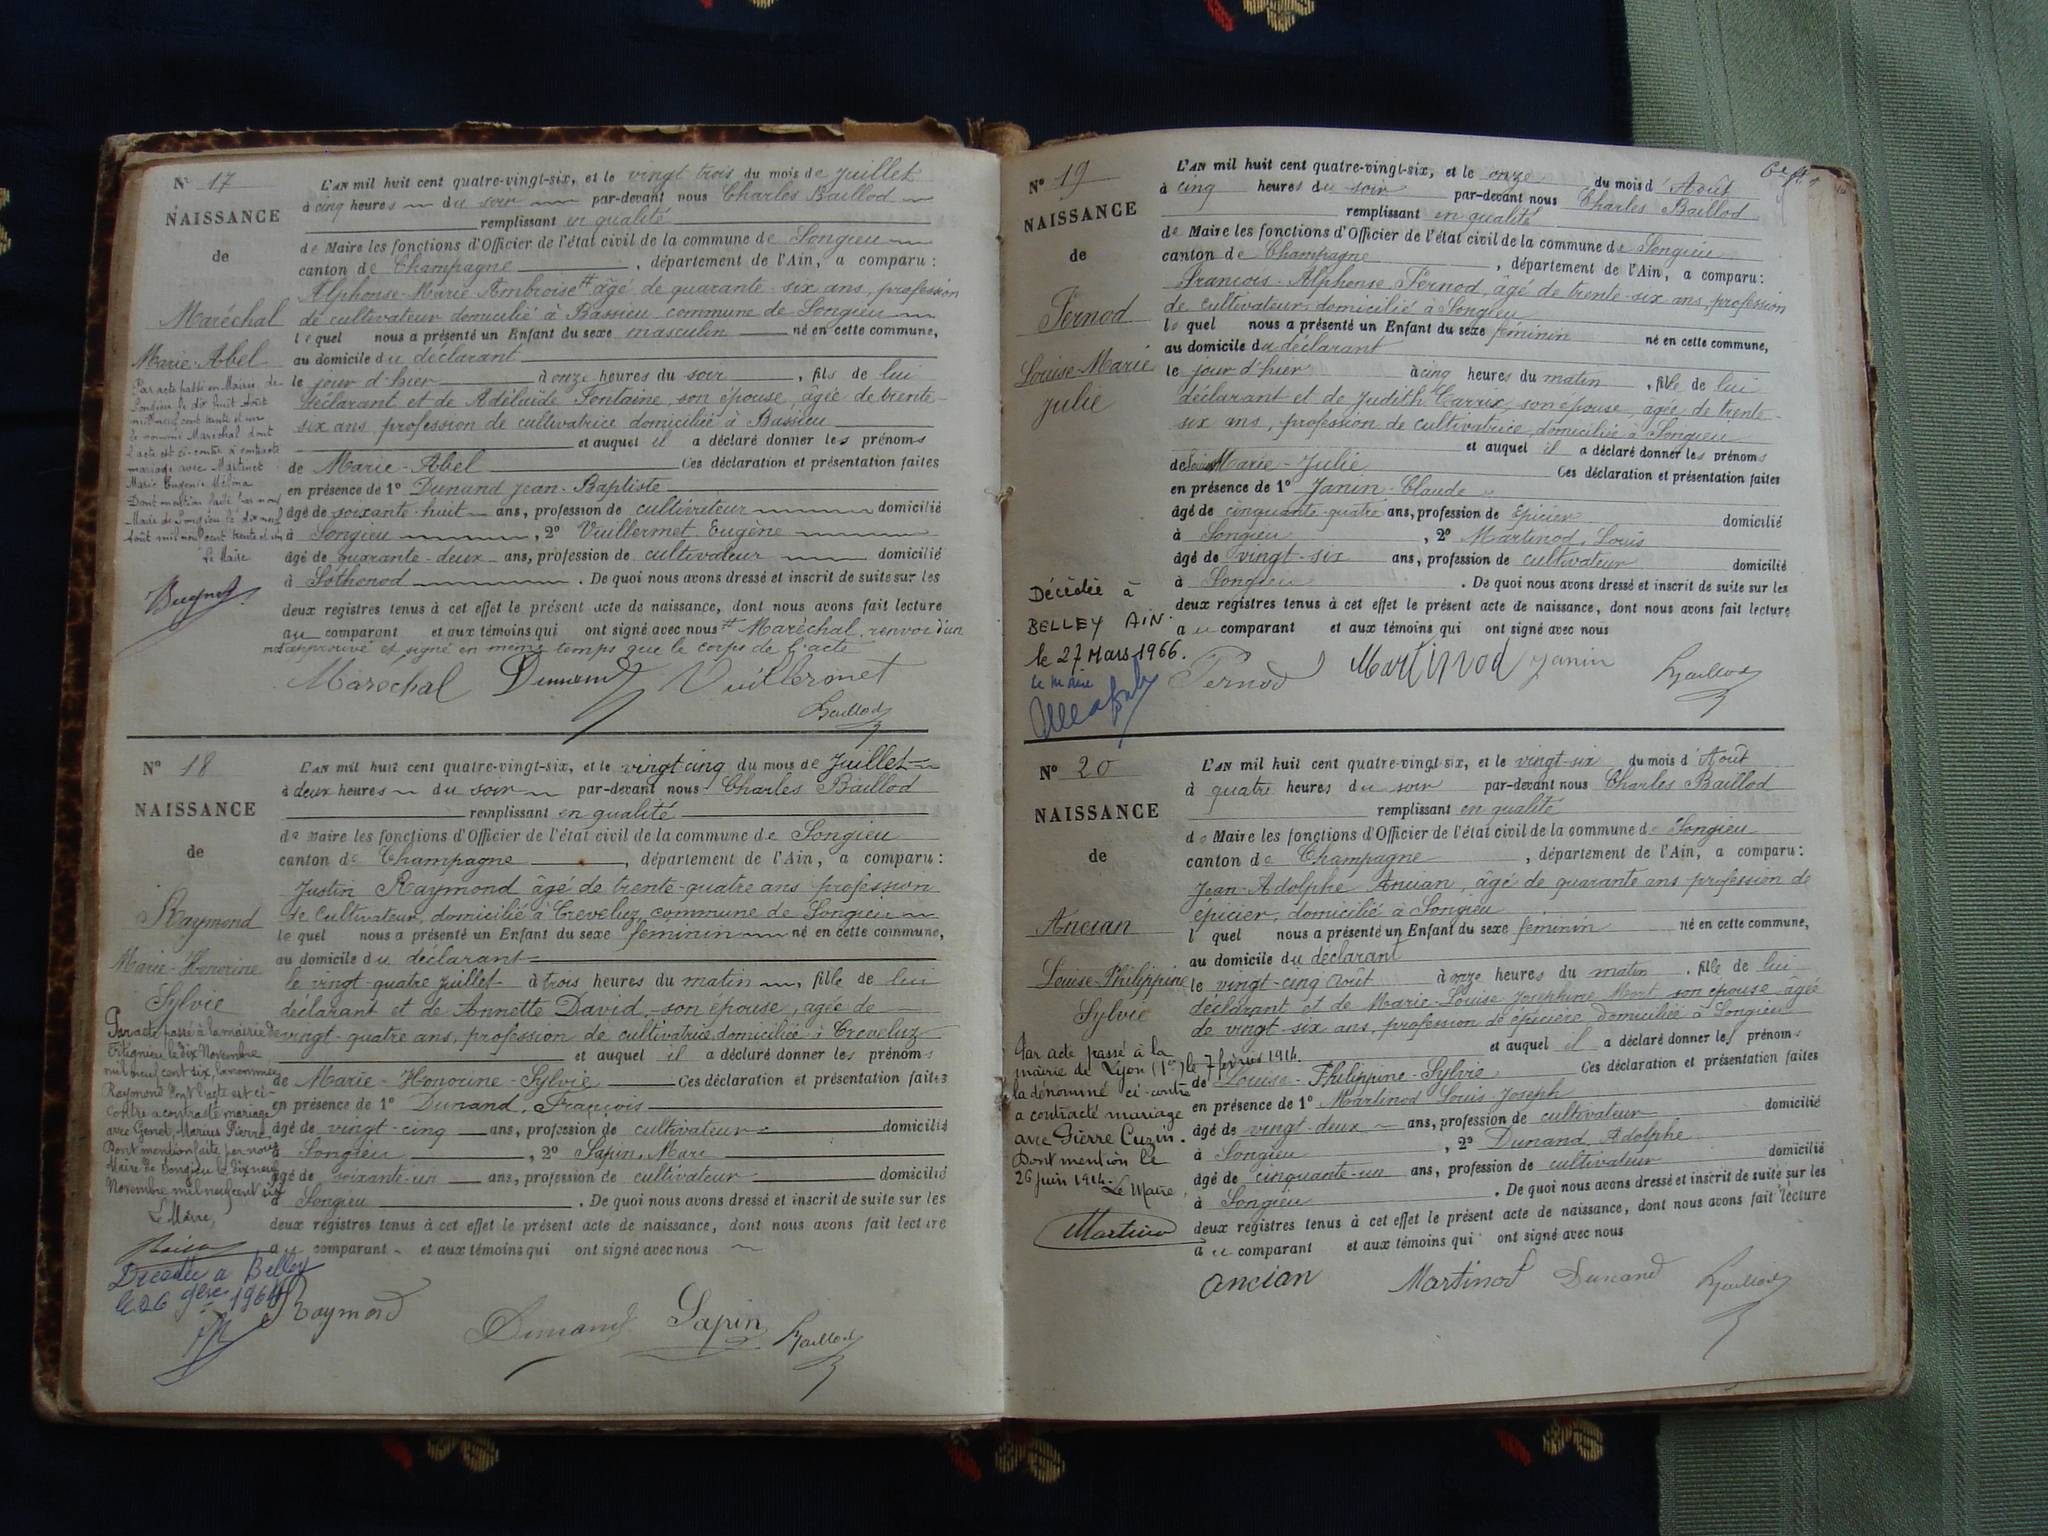 N° 17
NAISSANCE
de
Maréchal
Marie-Abel
Par acte passé en Mairie de
Songieu le dix huit Août
mil neuf cent trente et un
le nommé Maréchal dont
l'acte est ci-contre a contracté
mariage avec Martinet
Marie Eugénie Mélina
Dont mention faite par nous
Maire de Songieu le dix neuf
Août mil neuf cent trente et un
Le Maire
L'AN mil huit cent quatre-vingt-six, et le vingt trois du mois de Juillet
à cinq heures du soir par-devant nous Charles Baillod
remplissant en qualité
de Maire les fonctions d'Officier de l'état civil de la commune de Songieu
canton de Champagne, département de l'Ain, a comparu :
Alphonse-Marie Ambroise # âgé de quarante-six ans, profession
de cultivateur domicilié à Bassieu commune de Songieu
lequel nous a présenté un Enfant du sexe masculin né en cette commune,
au domicile du déclarant
le jour d'hier à onze heures du soir, fils de lui
déclarant et de Adélaïde Fontaine, son épouse, âgée de trente-
six ans, profession de cultivatrice domiciliée à Bassieu
et auquel il a déclaré donner les prénoms
de Marie-Abel Ces déclaration et présentation faites
en présence de 1° Dunand Jean-Baptiste
âgé de soixante-huit ans, profession de cultivateur domicilié
à Songieu, 2° Vuillermet Eugène
âgé de quarante-deux ans, profession de cultivateur domicilié
à Sothonod. De quoi nous avons dressé et inscrit de suite sur les
deux registres tenus à cet effet le présent acte de naissance, dont nous avons fait lecture
au comparant et aux témoins qui ont signé avec nous # Maréchal, renvoi d'un
mot approuvé et signé en même temps que le corps de l'acte
Maréchal Dunand Vuillermet
Baillod
N° 18
NAISSANCE
de
Raymond
Marie-Honorine
Sylvie
Par acte passé à la mairie de
Fitignieu le dix Novembre
mil neuf cent six, la nommée
Raymond dont l'acte est ci-
contre a contracté mariage
avec Genet, Marius Pierre
Dont mention faite par nous
Maire de Songieu le dix neuf
Novembre mil neuf cent six
Le Maire,
Décédée à Belley
le 26 9bre 1964
L'AN mil huit cent quatre-vingt-six, et le vingt cinq du mois de Juillet
à deux heures du soir par-devant nous Charles Baillod
remplissant en qualité
de Maire les fonctions d'Officier de l'état civil de la commune de Songieu
canton de Champagne, département de l'Ain, a comparu :
Justin Raymond âgé de trente-quatre ans profession
de Cultivateur, domicilié à Creveluz, commune de Songieu
lequel nous a présenté un Enfant du sexe féminin né en cette commune,
au domicile du déclarant
le vingt-quatre juillet à trois heures du matin, fille de lui
déclarant et de Annette David, son épouse, agée de
vingt-quatre ans, profession de cultivatrice, domiciliée à Creveluz
et auquel il a déclaré donner les prénoms
de Marie-Honorine-Sylvie Ces déclaration et présentation faites
en présence de 1° Dunand, François
âgé de vingt-cinq ans, profession de cultivateur domicilié
à Songieu, 2° Sapin, Marc
âgé de soixante-un ans, profession de cultivateur domicilié
à Songieu. De quoi nous avons dressé et inscrit de suite sur les
deux registres tenus à cet effet le présent acte de naissance, dont nous avons fait lecture
au comparant et aux témoins qui ont signé avec nous
Raymond
Dunand Sapin Baillod
N° 19
NAISSANCE
de
Pernod
Louise-Marie
Julie
Décédée à
BELLEY AIN.
le 27 Mars 1966.
Le maire
L'AN mil huit cent quatre-vingt-six, et le onze du mois d'Août
à cinq heures du soir par-devant nous Charles Baillod
remplissant en qualité
de Maire les fonctions d'Officier de l'état civil de la commune de Songieu
canton de Champagne, département de l'Ain, a comparu :
François-Alphonse Pernod, âgé de trente-six ans, profession
de cultivateur, domicilié à Songieu
lequel nous a présenté un Enfant du sexe féminin né en cette commune,
au domicile du déclarant
le jour d'hier à cinq heures du matin, fille de lui
déclarant et de Judith Carrix, son épouse, âgée de trente-
six ans, profession de cultivatrice, domiciliée à Songieu
et auquel il a déclaré donner les prénoms
de Louise Marie-Julie Ces déclaration et présentation faites
en présence de 1° Janin-Claude
âgé de cinquante-quatre ans, profession de Epicier domicilié
à Songieu, 2° Martinod, Louis
âgé de vingt-six ans, profession de cultivateur domicilié
à Songieu. De quoi nous avons dressé et inscrit de suite sur les
deux registres tenus à cet effet le présent acte de naissance, dont nous avons fait lecture
au comparant et aux témoins qui ont signé avec nous
Pernod Martinod Janin Baillod
N° 20
NAISSANCE
de
Ancian
Louise-Philippine
Sylvie
Par acte passé à la
mairie de Lyon (1er) le 7 février 1914.
la dénommé ci-contre
a contracté mariage
avec Pierre Cuzin.
Dont mention le
26 juin 1914.
Le Maire
Martinod
L'AN mil huit cent quatre-vingt-six, et le vingt-six du mois d'Août
à quatre heures du soir par-devant nous Charles Baillod
remplissant en qualité
de Maire les fonctions d'Officier de l'état civil de la commune de Songieu
canton de Champagne, département de l'Ain, a comparu :
Jean-Adolphe Ancian, âgé de quarante ans profession de
épicier, domicilié à Songieu
l quel nous a présenté un Enfant du sexe féminin né en cette commune,
au domicile du déclarant
le vingt-cinq Août à onze heures du matin, fille de lui
déclarant et de Marie-Louise Joséphine Mort son épouse, âgée
de vingt-six ans, profession de épicière domiciliée à Songieu
et auquel il a déclaré donner les prénoms
de Louise-Philippine-Sylvie Ces déclaration et présentation faites
en présence de 1° Martinod Louis Joseph
âgé de vingt-deux ans, profession de cultivateur domicilié
à Songieu, 2° Dunand, Adolphe
âgé de cinquante-un ans, profession de cultivateur domicilié
à Songieu. De quoi nous avons dressé et inscrit de suite sur les
deux registres tenus à cet effet le présent acte de naissance, dont nous avons fait lecture
au comparant et aux témoins qui ont signé avec nous
Ancian Martinod Dunand Baillod